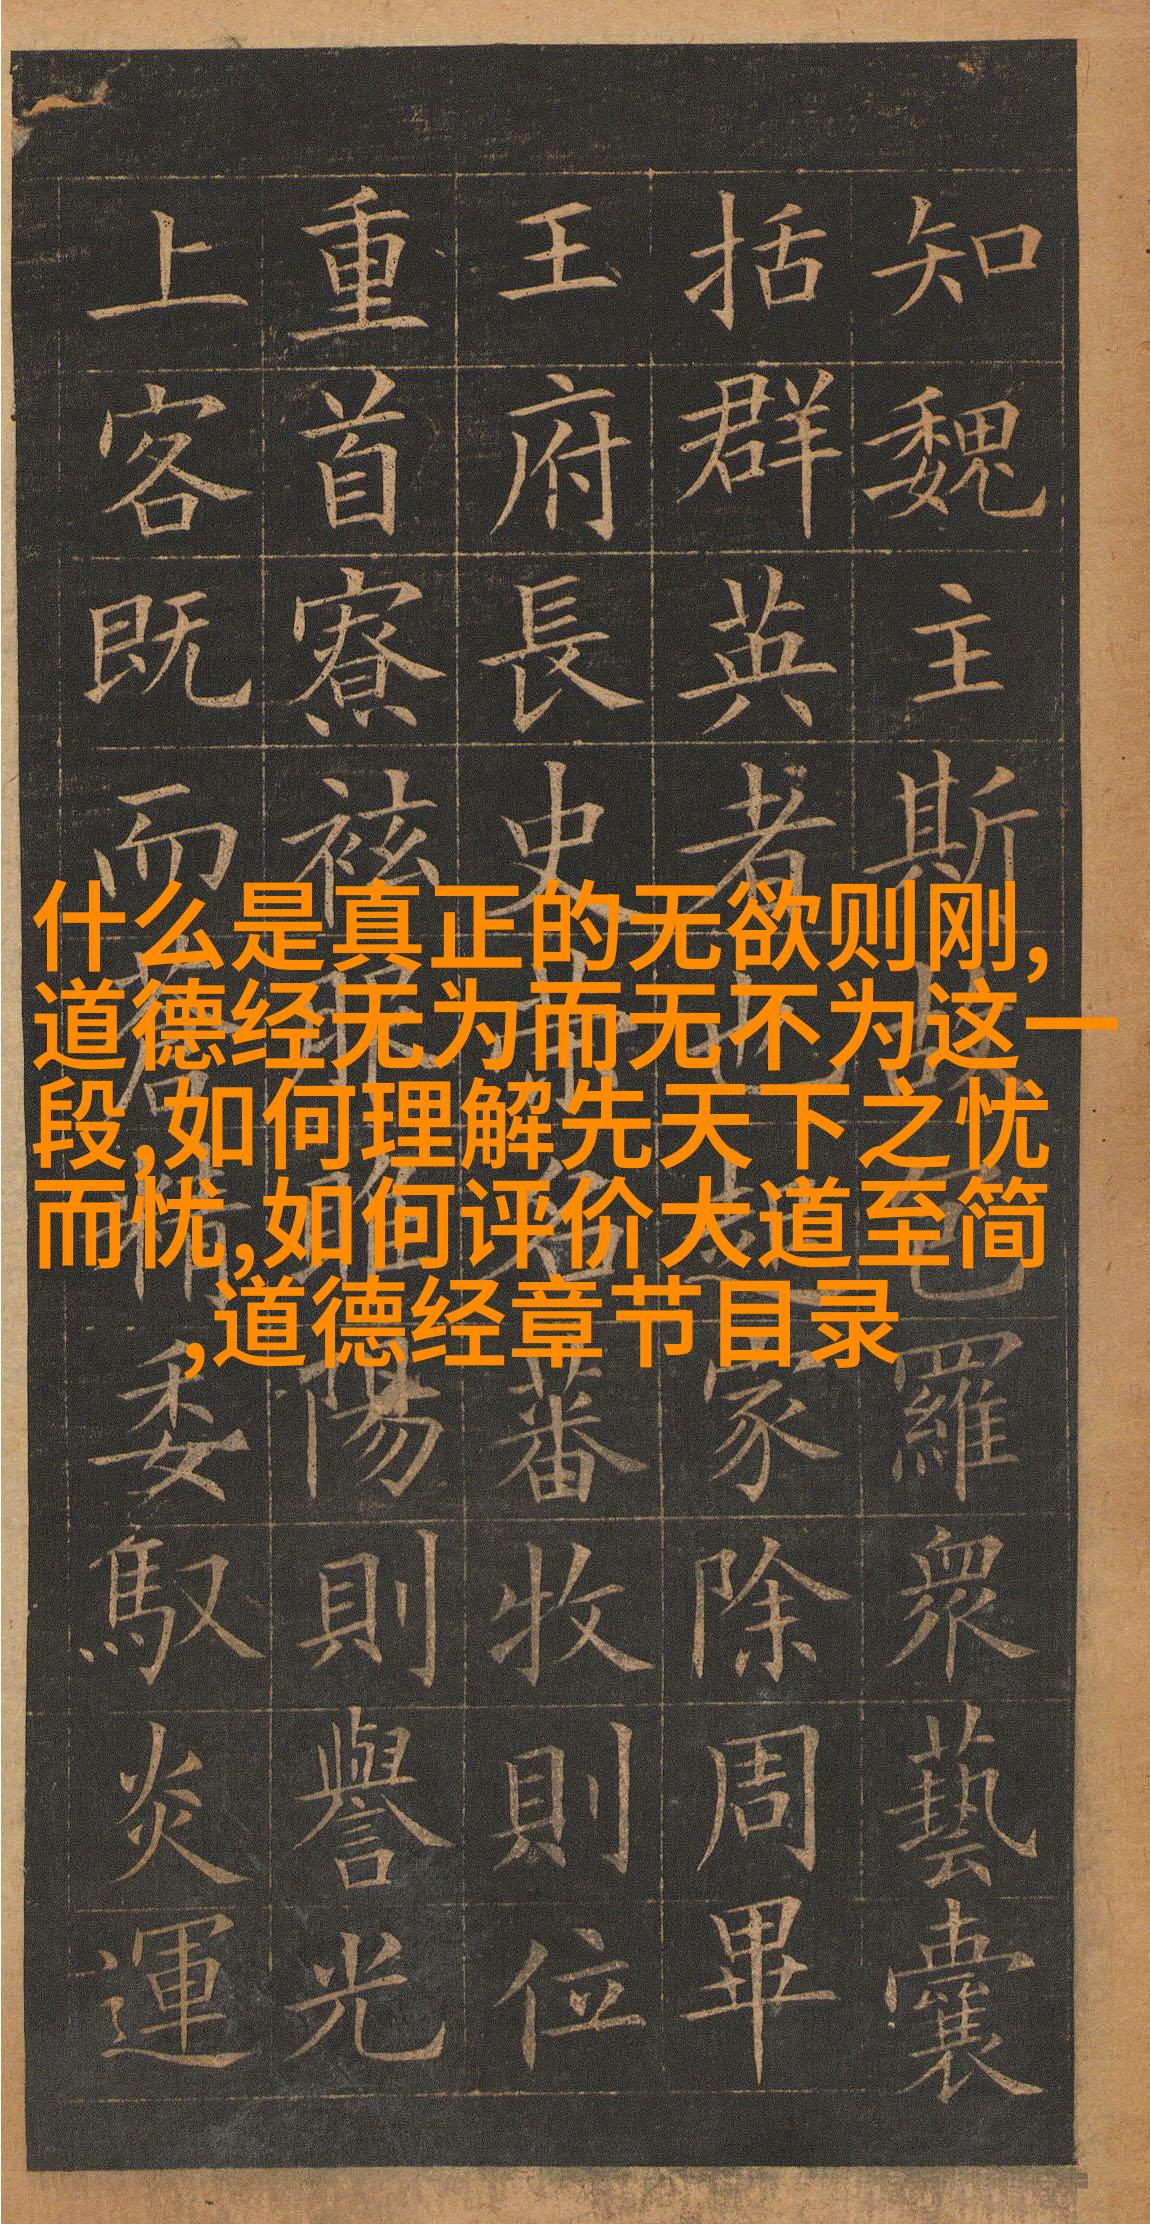 什么是真正的无欲则刚,
道德经无为而无不为这一
段,如何理解先天下之忧
而忧,如何评价大道至简
,道德经章节目录
知魏主斯故包羅衆藝囊
括群英者也起家除周畢
王府長史榮名蕃牧則位
重首寮袨服睢陽則譽光
上客既而蒼精委馭炎運